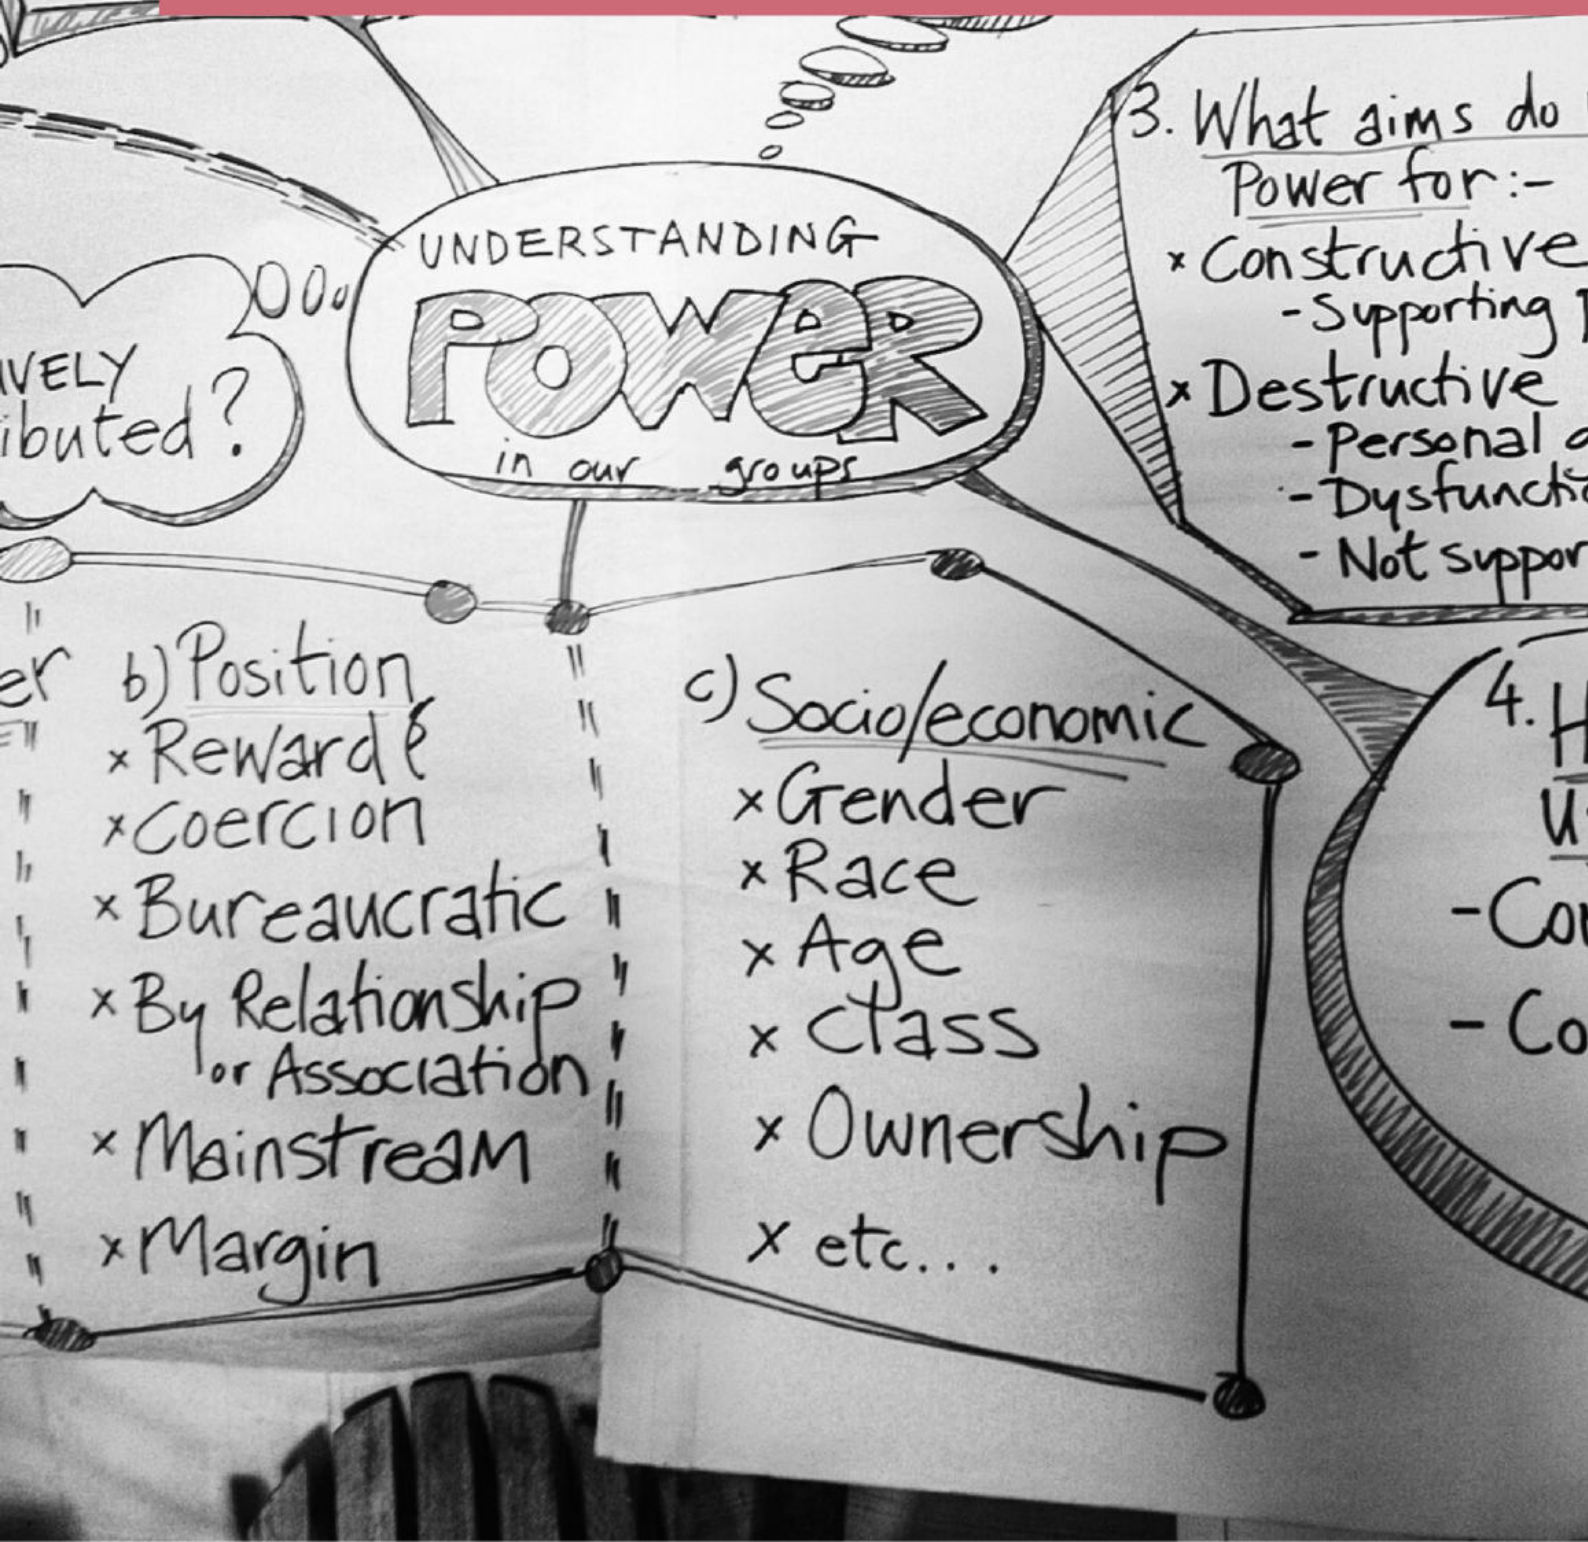 UNDERSTANDING
POWER
in our groups
IVELY
ibuted?
3. What aims do
Power for:-
x Constructive
- Supporting
x Destructive
- Personal
- Dysfuncti
- Not suppor
er
b) Position
x Reward &
x Coercion
x Bureaucratic
x By Relationship
or Association
x Mainstream
x Margin
c) Socio/economic
x Gender
x Race
x Age
x Class
x Ownership
x etc...
4. H
U
- Co
- Co